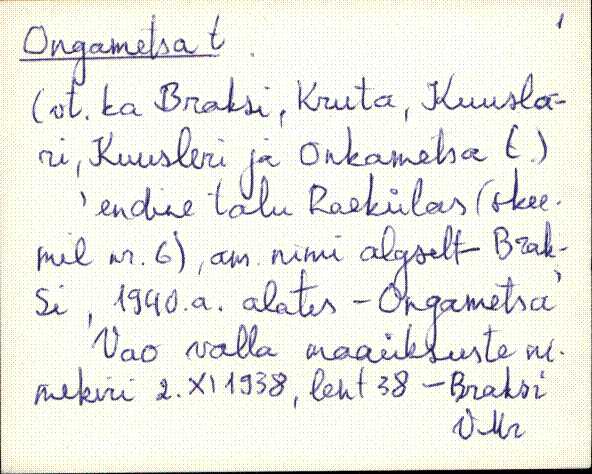 Ongametsa t. 1
(vt. ka Braksi, Kruta, Kuuslä-
ri, Kuusleri ja Onkametsa t.)
'endine talu Raekülas (skee-
mil nr. 6), am. nimi algselt Brak-
si, 1940.a. alates - Ongametsa'
Vao valla maaüksuste ni-
mekiri 2. XI 1938, leht 38 - Braksi
V Mr